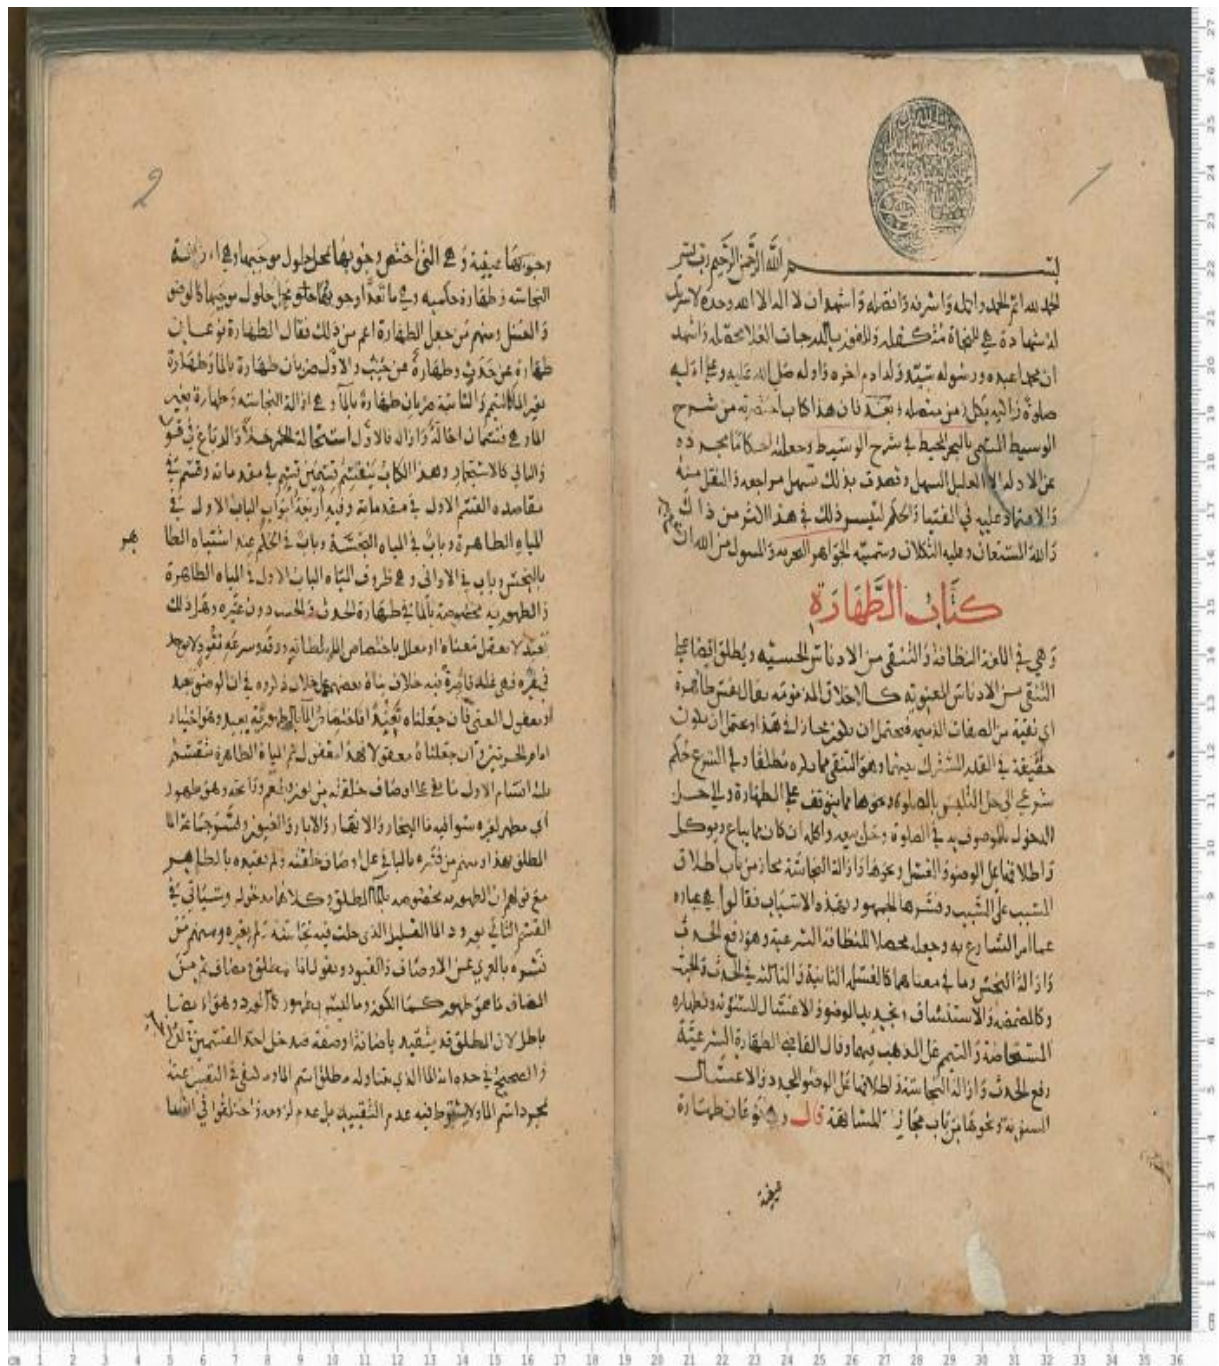 بسم الله الرحمن الرحيم رب يسر
الحمد لله اتم الحمد واكمله واشرفه وافضله واشهد ان لا اله الا الله وحده لا شريك
له شهادة هي للنجاة متكفله وللفوز بالدرجات العلا محصله واشهد
ان محمدا عبده ورسوله سيد ولد ادم اخره واوله صلى الله عليه وعلى اله
صلوة بكل من وبعد فان هذا كتاب من شرح
الوسيط المسمى بالبحر المحيط في شرح الوسيط وجعلته احكاما مجرده
عن الادله الا العليل السهل وقصدت بذلك تسهيل مراجعه والنقل منه
والاعتماد عليه في الفتيا والحكم لتيسر ذلك في هذا اكثر من ذاك
والله المستعان وعليه التكلان وسميته الجواهر البحريه والمسول من الله ان
كتاب الطهارة
وهي في اللغة النظافة والتنقي من الادناس الحسيه ويطلق ايضا على
التنقي من الادناس المعنويه كالاخلاق المذمومه يقال نفس طاهرة
اي نقية من الصفات الذميمه فيحتمل ان يكون مجازا في هذا ويحتمل ان يكون
حقيقة في القدر المشترك بينهما وهو التنقي مما يكره مطلقا وفي الشرع حكم
شرعي الى حل التلبس بالصلوة ونحوها مما يتوقف على الطهارة والى حل
الدخول بالموصوف به في الصلوة وحل بيعه واكله ان كان مما يباع ويوكل
واطلاقها على الوضوء والغسل ونحوها وازالة النجاسة مجاز من باب اطلاق
المسبب على السبب وفسرها الجمهور بهذه الاسباب فقالوا هي عباره
عما امر الشارع به وجعله محصلا للنظافة الشرعية وهو رفع الحدث
وازالة النجس وما في معناهما كالغسله الثانية والثالثة في الحدث والخبث
وكالمضمضه والاستنشاق وتجديد الوضوء والاغتسال المسنونه وطهاره
المستحاضة والتيمم على المذهب فيهما وقال القاضي الطهارة الشرعية
رفع الحدث وازالة النجاسة واطلاقها على الوضوء المجدد والاغتسال
المسنونة ونحوها من باب مجاز المشابهة قال وهي نوعان طهارة
عينية
وجوبها عينية وهي التي اختص وجوبها بمحل حلول موجبها وهي ازالة
النجاسه وطهارة حكميه وهي ما تعدا وجوبها محل حلول موجبها كالوضوء
والغسل ومنهم من جعل الطهارة اعم من ذلك فقال الطهارة نوعان
طهارة عن حدث وطهارة عن خبث والاول ضربان طهارة بالماء وطهارة
بغير الماء كالتيمم والثانية ضربان طهارة بالماء وهي ازالة النجاسه وطهارة بغير
الماء وهي قسمان احالة وازالة فالاول استحالة الخمر خلا والدباغ في قول
والثاني كالاستجمار وهذا الكتاب ينقسم قسمين قسم في مقدماته وقسم في
مقاصده القسم الاول في مقدماته وفيه اربعة ابواب الباب الاول في
المياه الطاهرة وباب في المياه النجسة وباب في الحكم عند اشتباه الطا
هر
بالنجس وباب في الاواني وهي ظروف المياه الباب الاول في المياه الطاهرة
والطهوريه مخصوصة بالماء في طهارة الحدث والخبث دون غيره وهل ذلك
تعبد لا يعقل معناه او معلل باختصاص الماء بلطافه ورقه وسرعه نفوذ لا يوجد
في غيره فهي علة قاصرة فيه خلاف بناه بعضهم على خلاف ذكروه في ان الوضوء تعبد
او معقول المعنى فان جعلناه تعبدا فاختصاص الماء بالطهوريه تعبد وهو اختيار
امام الحرمين وان جعلناه معقولا فهذا معقول ثم المياه الطاهرة تنقسم
ثلاثة اقسام الاول ما بقي على اوصاف خلقته من لون وطعم ورائحة وهو طهور
اي مطهر لغيره سوا فيه ماء البحار والانهار والابار والعيون
المطلق بهذا ومنهم من فسره بالباقي على اوصاف خلقته ولم يقيده بالطاهر
مع قولهم ان الطهوريه مختصه بالماء المطلق وكلاهما مدخول وسياتي في
القسم الثاني نوردد الماء القليل الذي حلت فيه نجاسة ولم تغيره ومنهم من
فسره بالعري عن الاوصاف والقيود ويقول الماء مطلق ومضاف ثم من
المضاف ما هو طهور كماء الكوز وما ليس بطهور كماء الورد وهو ايضا
باطل لان المطلق قد يتقيد باضافة او صفة فدخل احد القسمين في الاخر
والصحيح في حده انه الماء الذي يتناوله مطلق اسم الماء ويكفي في التعبير عنه
مجرد اسم الماء ولا يشترط فيه عدم التقييد بل عدم لزومه واختلفوا في الماء